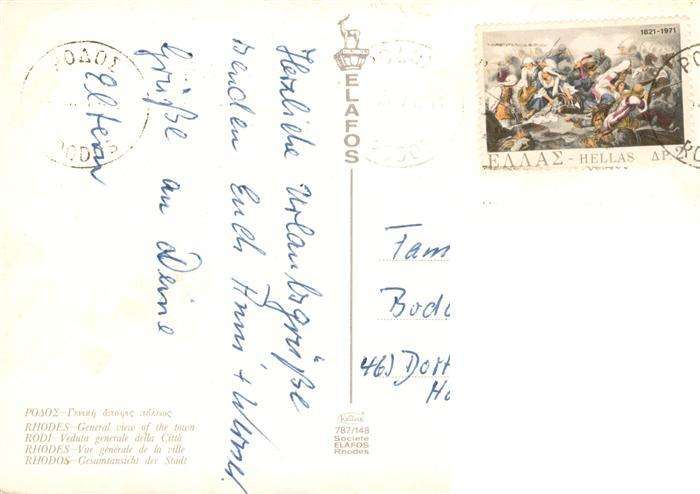 Herzliche Urlaubsgrüße
senden Euch Anni + Werner
Grüße an Deine
Eltern
ΡΟΔΟΣ
RODOS
ELAFOS
1821-1971
ΕΛΛΑΣ - HELLAS ΔΡ 2
ΡΟ
Fam
Bode
46) Dort
Ho
ΡΟΔΟΣ—Γενική άποψις πόλεως
RHODES—General view of the town
RODI—Veduta generale della Città
RHODES—Vue générale de la ville
RHODOS—Gesamtansicht der Stadt
787/148
Societe
ELAFOS
Rhodes